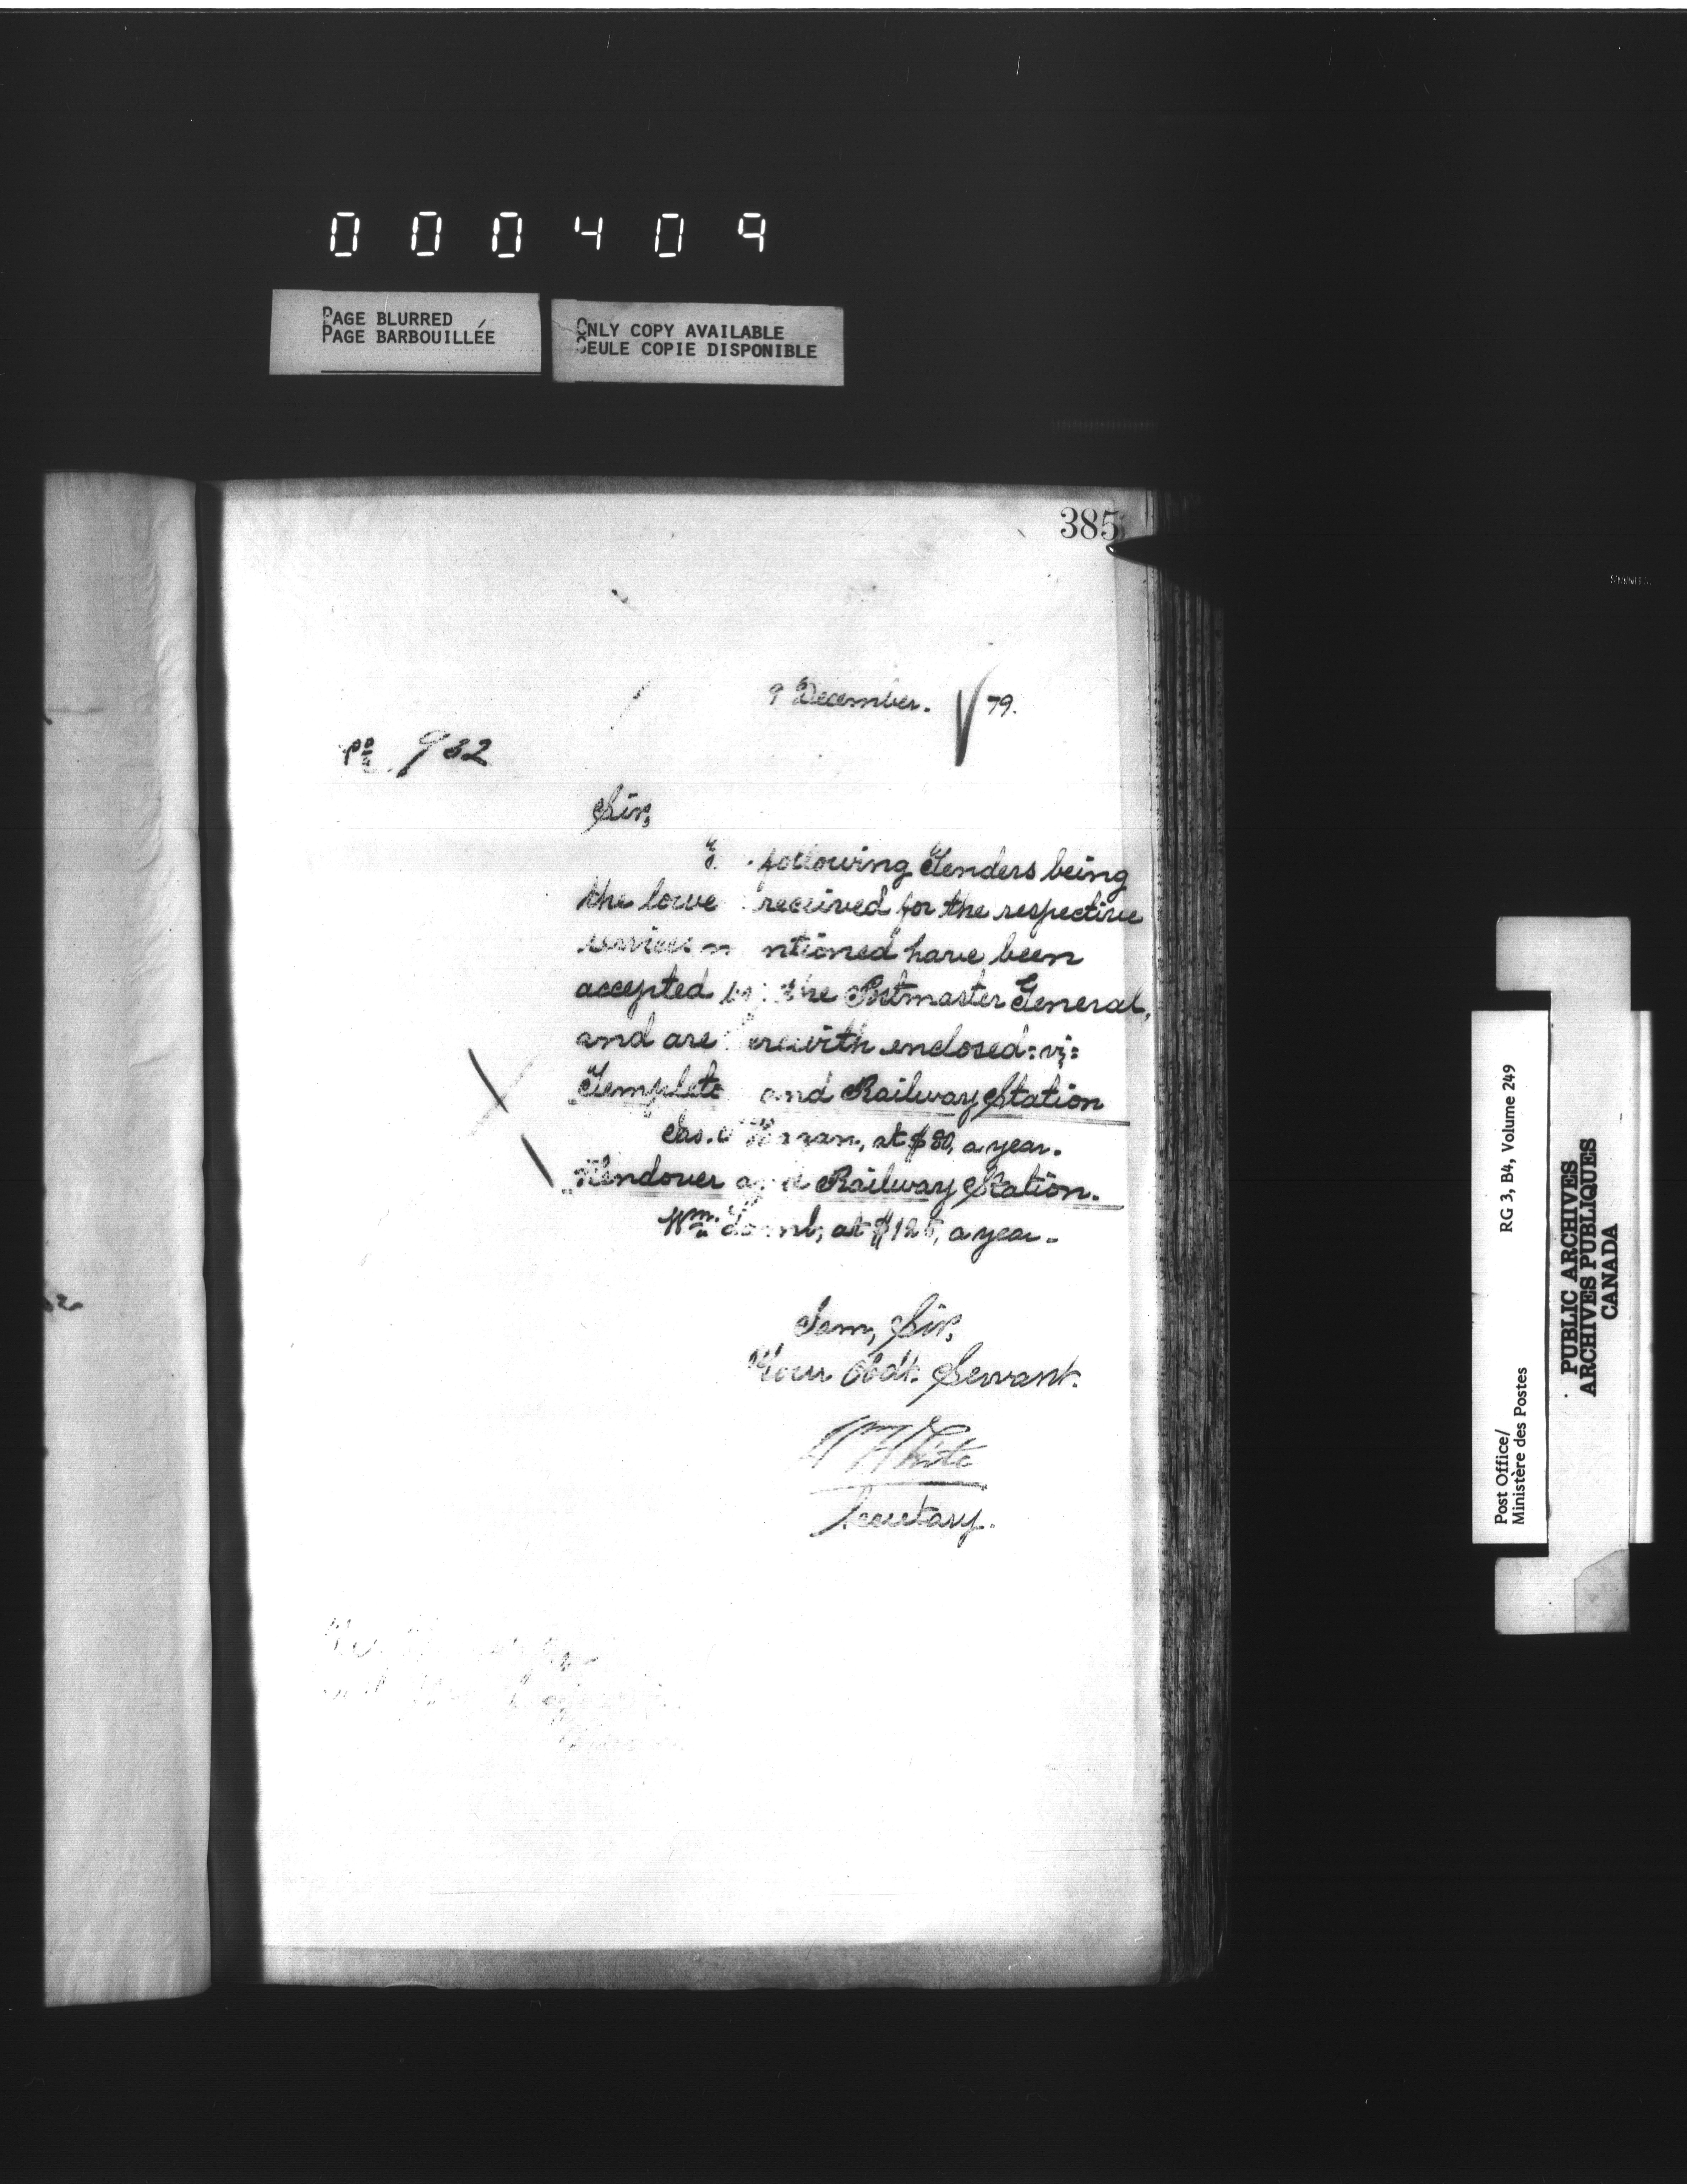 000409
PAGE BLURRED
PAGE BARBOUILLÉE
ONLY COPY AVAILABLE
SEULE COPIE DISPONIBLE
385
9 December. 79.
No 932
Sir,
following Tenders being
the lowe received for the respective
services m ntioned have been
accepted by the Postmaster General,
and are erewith enclosed: viz:
Temple and Railway Station
at $80, a year.
Wendover and Railway Station.
Wm. Lamb, at $125, a year.
I am, Sir,
Your Obdt. Servant.
W White
Secretary.
Post Office/
Ministère des Postes
RG 3, B4, Volume 249
PUBLIC ARCHIVES
ARCHIVES PUBLIQUES
CANADA